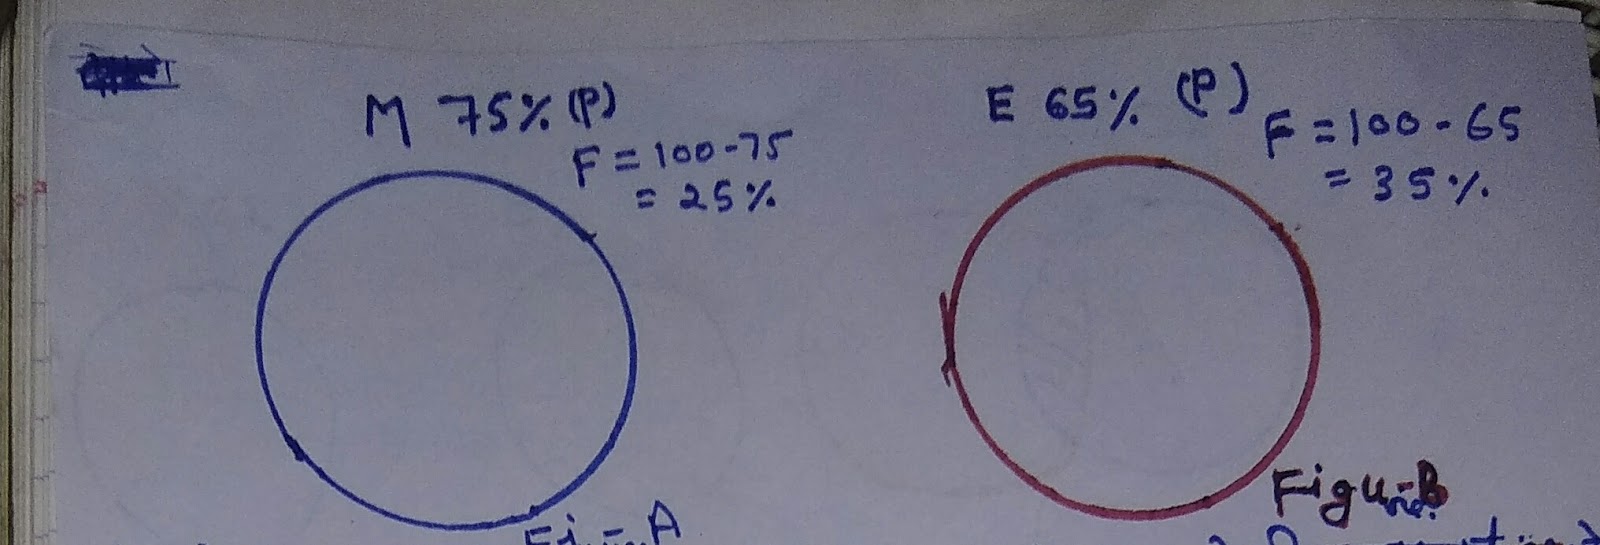 M 75% (P)
F = 100-75
= 25%
E 65% (P)
F = 100-65
= 35%
A
Figure-B